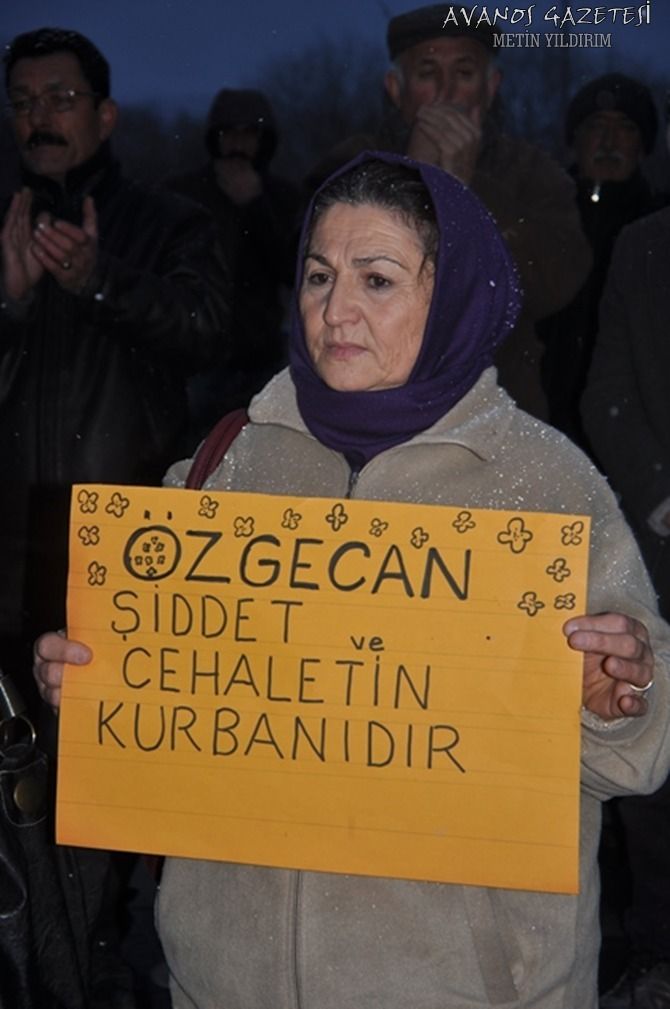 AVANOS GAZETESİ
METİN YILDIRIM
ÖZGECAN
ŞİDDET ve
CEHALETİN
KURBANIDIR